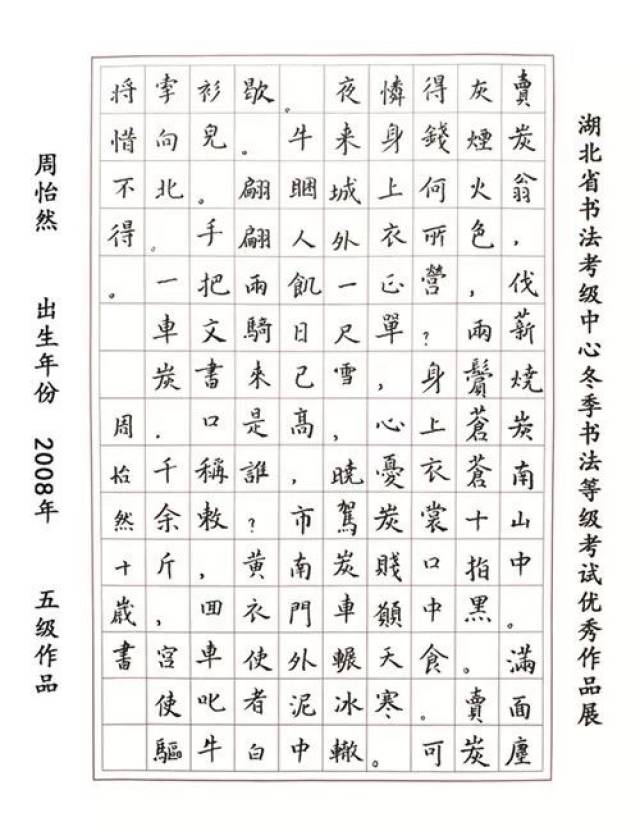 湖北省书法考级中心冬季书法等级考试优秀作品展
賣炭翁,伐薪燒炭南山中。滿面塵
灰煙火色,兩鬢蒼蒼十指黑。賣炭
得錢何所營?身上衣裳口中食。可
憐身上衣正單,心憂炭賤願天寒。
夜来城外一尺雪,曉駕炭車輾冰轍
。牛睏人飢日已高,市南門外泥中
歇。翩翩兩騎來是誰?黃衣使者白
衫兒。手把文書口稱敕,囬車叱牛
牽向北。一車炭,千余斤,宮使驅
將惜不得。 周怡然十歲書
周怡然 出生年份 2008年 五级作品